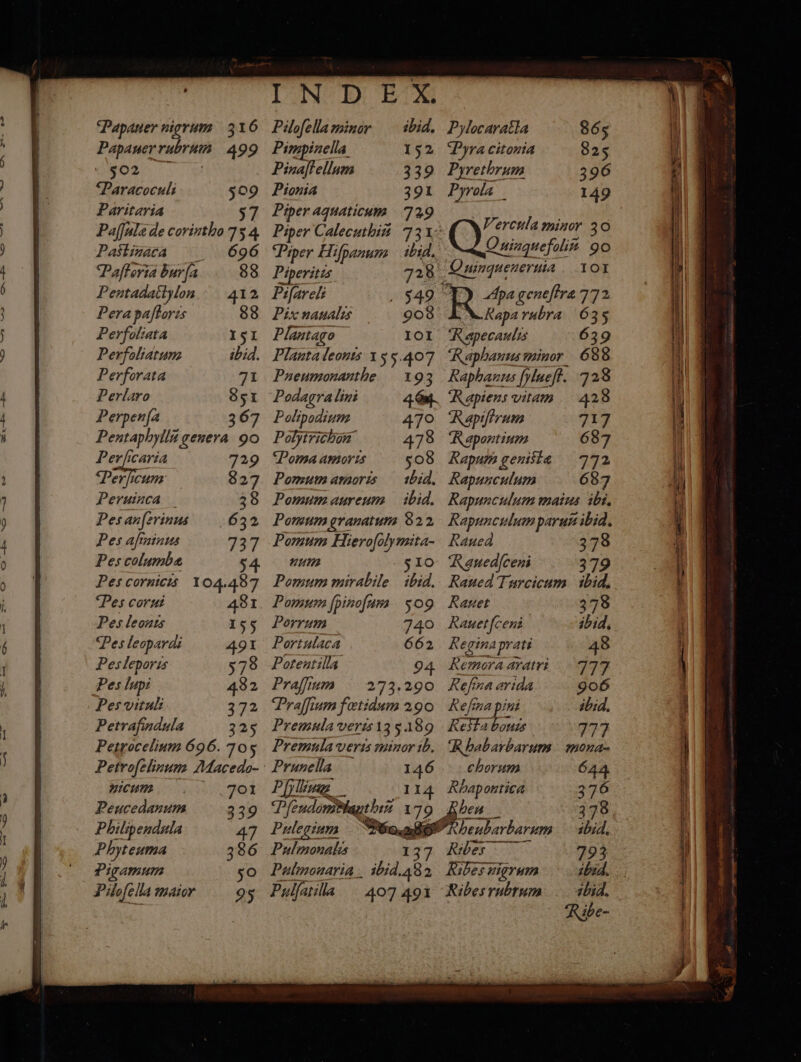 INDEX.
Papauer nigrum 316
Papauer rubrum 499
502
Paracoculi 509
Paritaria 57
Paſſulæ de corintho 754
Paſtinaca 696
Paſtoria burſa 88
Pentadactylon 412
Pera paſtoris 88
Perfoliata 151
Perfoliatum ibid.
Perforata 71
Perlaro 851
Perpenſa 367
Pentaphylli genera 90
Perſicaria 729
Perſicum 827
Peruinca 38
Pes anſerinus 632
Pes aſininus 737
Pes columbæ 54
Pes cornicis 104.487
Pes corui 481
Pes leonis 155
Pes leopardi 491
Pes leporis 578
Pes lupi 482
Pes vituli 372
Petraſindula 325
Petrocelium 696. 705
Petroſelinum Macedo-
nicum 701
Peucedanum 339
Philipendula 47
Phyteuma 386
Pigamum 50
Piloſella maior 95
Piloſella minor ibid.
Pimpinella 152
Pinaſtellum 339
Pionia 391
Piper aquaticum 729
Piper Calecuthiũ 731
Piper Hiſpanum ibid.
Piperitis 728
Piſareli 549
Pix naualis 908
Plantago 101
Planta leonis 155.407
Pneumonanthe 193
Podagra lini
Polipodium 470
Polytrichon 478
Poma amoris 508
Pomum amoris ibid.
Pomum aureum ibid.
Pomum granatum 822
Pomum Hieroſolymita-
num 510
Pomum mirabile ibid.
Pomum ſpinoſum 509
Porrum 740
Portulaca 662
Potentilla 94
Praſſium 273.290
Praſſium fœtidum 290
Premula veris 135.189
Premula veris minor ib.
Prunella 146
Pſyllium 114
Pſeudomelanthiũ 179
Pulegium
Pulmonalis 137
Pulmonaria ibid.482
Pulſatilla 407 491
Pylocaracta 865
Pyra citonia 825
Pyrethrum 396
Pyrola 149
QVercula minor 30
Quinquefoliũ 90
Quinqueneruia 101
RApa geneſtræ 772
Rapa rubra 635
Rapecaulis 639
Raphanus minor 688
Raphanus ſylueſt. 728
Rapiens vitam 428
Rapiſtrum 717
Rapontium 687
Rapum geniſtæ 772
Rapunculum 687
Rapunculum maius ibi.
Rapunculum paruũ ibid.
Raued 378
Rauedſceni 379
Raued Turcicum ibid.
Rauet 378
Rauetſceni ibid.
Regina prati 48
Remora aratri 777
Reſina arida 906
Reſina pini ibid.
Reſta bouis 777
Rhabarbarum mona-
chorum 644
Rhapontica 376
Rheu 378
Rheubarbarum ibid.
Ribes 793
Ribes nigrum ibid.
Ribes rubrum ibid.
Ribe-